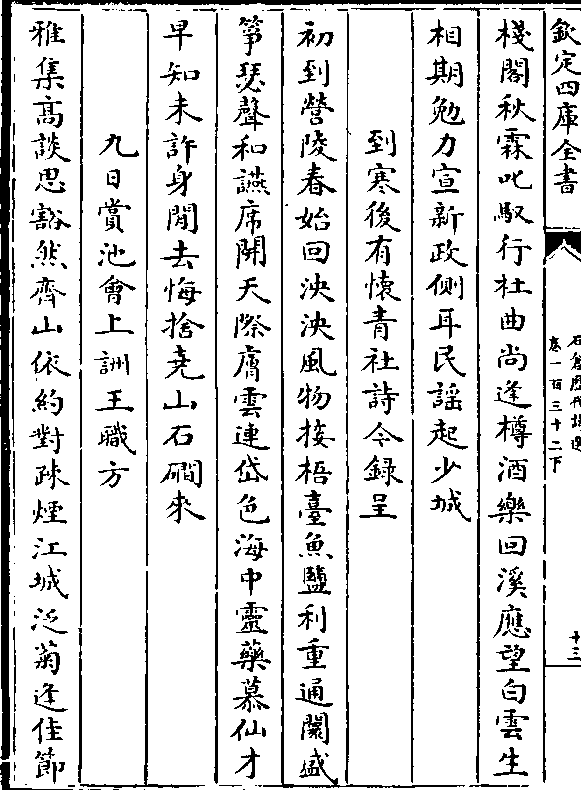 欽定四庫全書
石倉歷代詩選
卷一百三十二下
十三
棧閣秋霖叱馭行杜曲尚逢樽酒樂回溪應望白雲生
相期勉力宣新政側耳民謡起少城
到寒後有懷青社詩今録呈
初到營陵春始回泱泱風物接梧臺魚鹽利重通闤盛
箏瑟聲和讌席開天際膚雲連岱色海中靈藥慕仙才
早知未許身閒去悔捨堯山石磵來
九日賞池會上詶王職方
雅集高談思豁然齊山依約對疎煙江城泛菊逢佳節